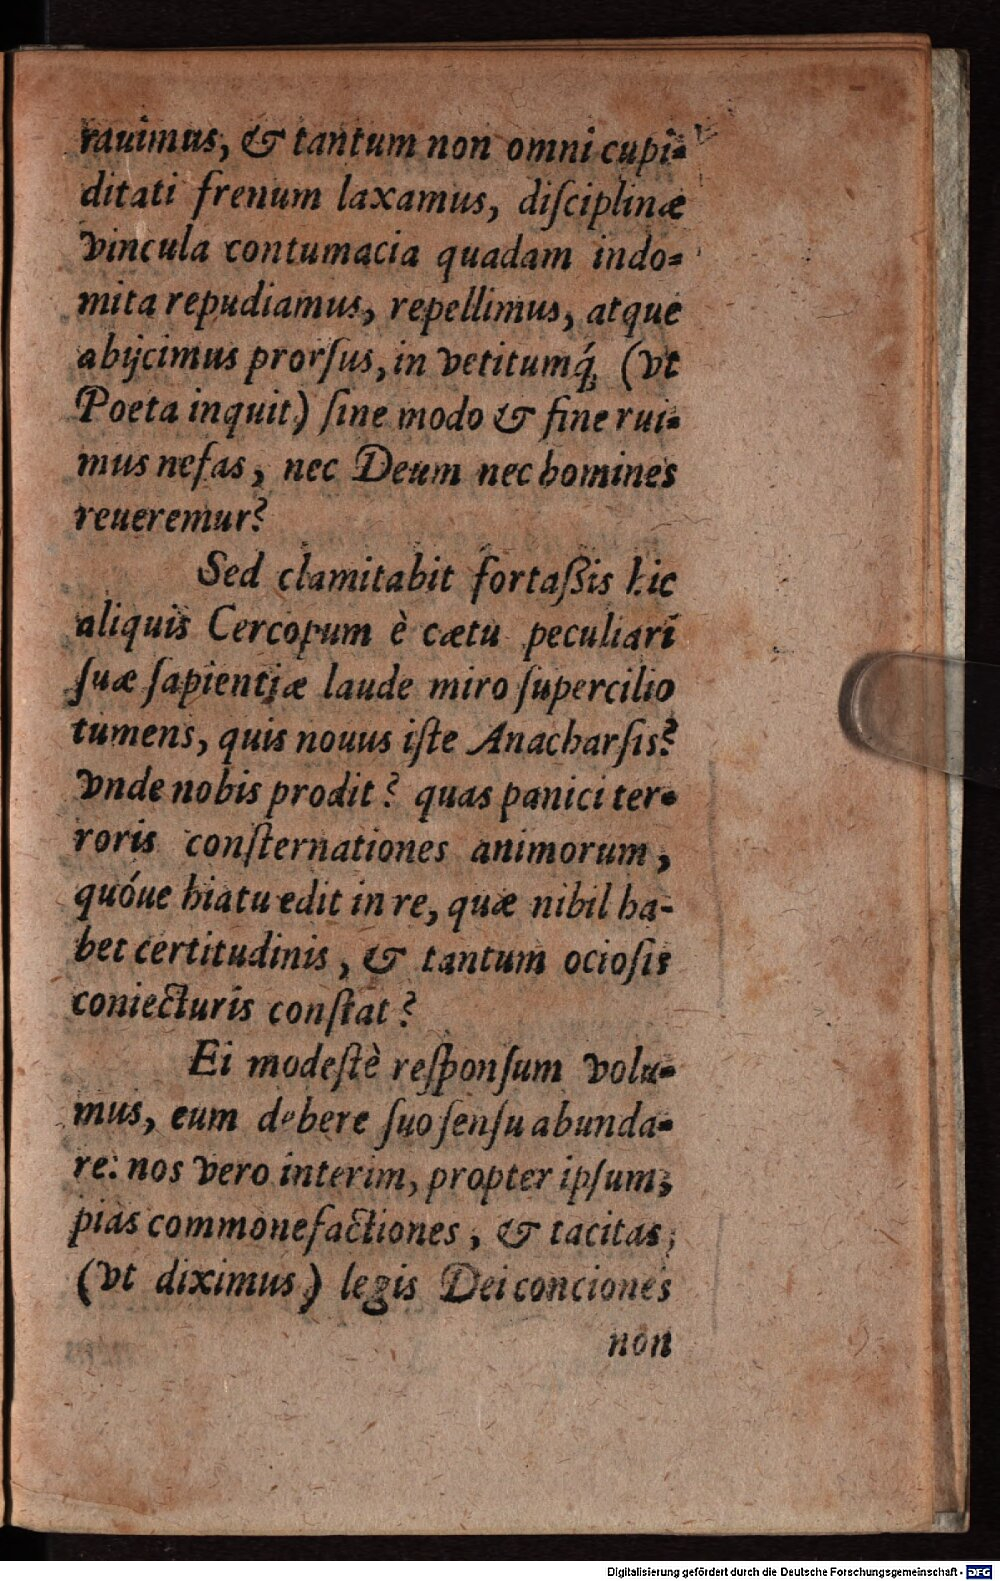 rauimus, & tantum non omni cupi-
ditati frenum laxamus, diſciplinæ
vincula contumacia quadam indo-
mita repudiamus, repellimus, atque
abijcimus prorſus, in vetitumq́; (vt
Poeta inquit) ſine modo & fine rui-
mus nefas, nec Deum nec homines
reueremur?
Sed clamitabit fortaßis hic
aliquis Cercopum è cætu peculiari
ſuæ ſapientiæ laude miro ſupercilio
tumens, quis nouus iſte Anacharſis?
vnde nobis prodit? quas panici ter-
roris conſternationes animorum,
quóue hiatu edit in re, quæ nihil ha-
bet certitudinis, & tantum ocioſis
coniecturis conſtat?
Ei modeſtè reſponſum volu-
mus, eum debere ſuo ſenſu abunda-
re: nos vero interim, propter ipſum,
pias commonefactiones, & tacitas,
(vt diximus) legis Dei conciones
non
Digitalisierung gefördert durch die Deutsche Forschungsgemeinschaft - DFG